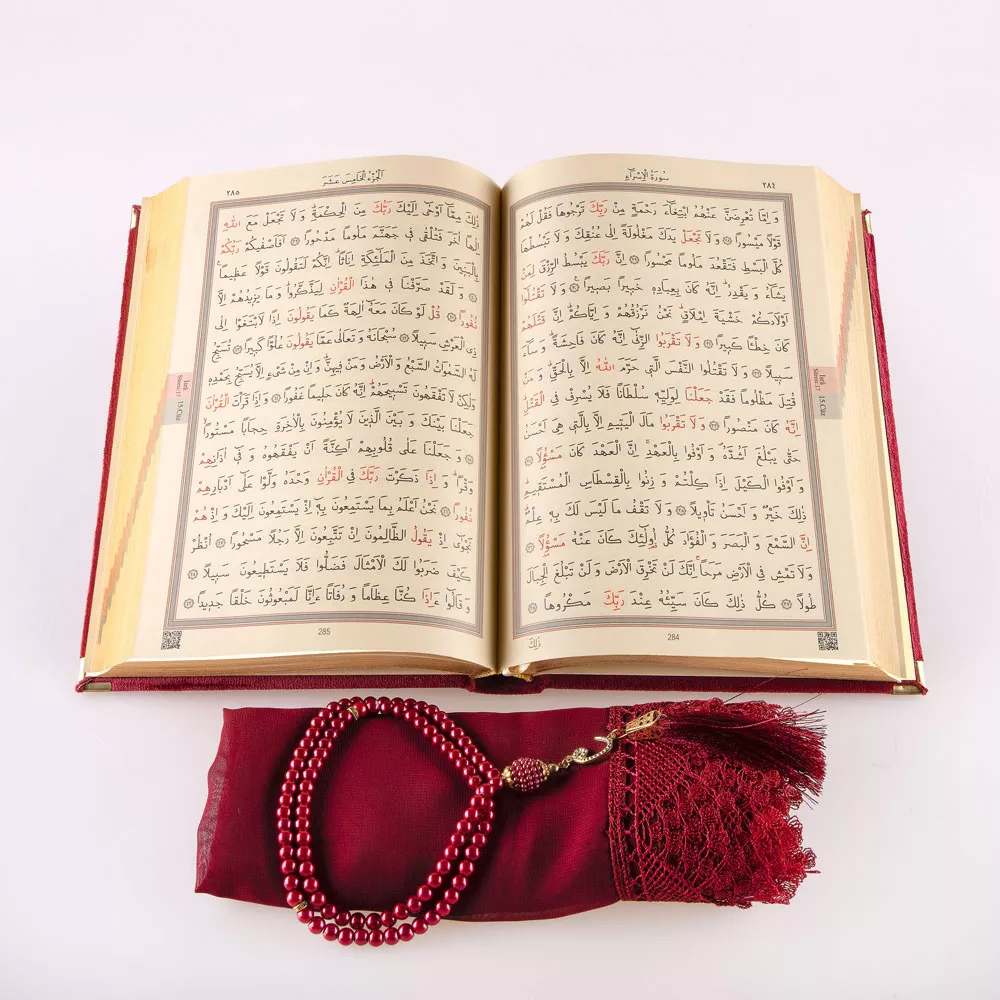 ٢٨٤
سُورَةُ الْاِسْرَٓاءِ
وَ اِمَّا تُعْرِضَنَّ عَنْهُمُ ابْتِغَٓاءَ رَحْمَةٍ مِنْ رَبِّكَ تَرْجُوهَا فَقُلْ لَهُمْ
قَوْلًا مَيْسُورًا ۝٢٨ وَلَا تَجْعَلْ يَدَكَ مَغْلُولَةً اِلٰى عُنُقِكَ وَلَا تَبْسُطْهَا
كُلَّ الْبَسْطِ فَتَقْعُدَ مَلُومًا مَحْسُورًا ۝٢٩ اِنَّ رَبَّكَ يَبْسُطُ الرِّزْقَ لِمَنْ
يَشَٓاءُ وَ يَقْدِرُۜ اِنَّهُ كَانَ بِعِبَادِهٖ خَبٖيرًا بَصٖيرًا ۝٣٠ وَلَا تَقْتُلُٓوا
اَوْلَادَكُمْ خَشْيَةَ اِمْلَاقٍۜ نَحْنُ نَرْزُقُهُمْ وَ اِيَّاكُمْۜ اِنَّ قَتْلَهُمْ
كَانَ خِطْـًٔا كَبٖيرًا ۝٣١ وَلَا تَقْرَبُوا الزِّنٰٓى اِنَّهُ كَانَ فَاحِشَةًۜ وَ سَٓاءَ
سَبٖيلًا ۝٣٢ وَلَا تَقْتُلُوا النَّفْسَ الَّتٖى حَرَّمَ اللّٰهُ اِلَّا بِالْحَقِّۜ وَ مَنْ
قُتِلَ مَظْلُومًا فَقَدْ جَعَلْنَا لِوَلِيِّهٖ سُلْطَانًا فَلَا يُسْرِفْ فِى الْقَتْلِۜ
اِنَّهُ كَانَ مَنْصُورًا ۝٣٣ وَلَا تَقْرَبُوا مَالَ الْيَتٖيمِ اِلَّا بِالَّتٖى هِىَ اَحْسَنُ
حَتّٰى يَبْلُغَ اَشُدَّهُۖ وَ اَوْفُوا بِالْعَهْدِۚ اِنَّ الْعَهْدَ كَانَ مَسْؤُ۫لًا ۝٣٤
وَ اَوْفُوا الْكَيْلَ اِذَا كِلْتُمْ وَ زِنُوا بِالْقِسْطَاسِ الْمُسْتَقٖيمِۜ
ذٰلِكَ خَيْرٌ وَ اَحْسَنُ تَأْوٖيلًا ۝٣٥ وَلَا تَقْفُ مَا لَيْسَ لَكَ بِهٖ عِلْمٌۜ
اِنَّ السَّمْعَ وَ الْبَصَرَ وَ الْفُؤٰادَ كُلُّ اُو۬لٰٓئِكَ كَانَ عَنْهُ مَسْؤُ۫لًا ۝٣٦
وَلَا تَمْشِ فِى الْاَرْضِ مَرَحًاۚ اِنَّكَ لَنْ تَخْرِقَ الْاَرْضَ وَ لَنْ تَبْلُغَ الْجِبَالَ
طُولًا ۝٣٧ كُلُّ ذٰلِكَ كَانَ سَيِّئُهُ عِنْدَ رَبِّكَ مَكْرُوهًا ۝٣٨
ذٰلِكَ
284
İsrâ
Sûresi:17
15.Cüz
اَلْجُزْءُ الْخَامِسَ عَشَرَ
٢٨٥
ذٰلِكَ مِمَّٓا اَوْحٰٓى اِلَيْكَ رَبُّكَ مِنَ الْحِكْمَةِۜ وَلَا تَجْعَلْ مَعَ اللّٰهِ
اِلٰهًا اٰخَرَ فَتُلْقٰى فٖى جَهَنَّمَ مَلُومًا مَدْحُورًا ۝٣٩ اَفَاَصْفٰيكُمْ رَبُّكُمْ
بِالْبَنٖينَ وَ اتَّخَذَ مِنَ الْمَلٰٓئِكَةِ اِنَاثًاۜ اِنَّكُمْ لَتَقُولُونَ قَوْلًا عَظٖيمًا
۝٤٠ وَ لَقَدْ صَرَّفْنَا فٖى هٰذَا الْقُرْاٰنِ لِيَذَّكَّرُواۜ وَ مَا يَزٖيدُهُمْ اِلَّا
نُفُورًا ۝٤١ قُلْ لَوْ كَانَ مَعَهُٓ اٰلِهَةٌ كَمَا يَقُولُونَ اِذًا لَابْتَغَوْا اِلٰى
ذِى الْعَرْشِ سَبٖيلًا ۝٤٢ سُبْحَانَهُ وَ تَعَالٰى عَمَّا يَقُولُونَ عُلُوًّا كَبٖيرًا ۝٤٣ تُسَبِّحُ
لَهُ السَّمٰوَاتُ السَّبْعُ وَ الْاَرْضُ وَ مَنْ فٖيهِنَّۜ وَ اِنْ مِنْ شَىْءٍ اِلَّا يُسَبِّحُ بِحَمْدِهٖ
وَلٰكِنْ لَا تَفْقَهُونَ تَسْبٖيحَهُمْۜ اِنَّهُ كَانَ حَلٖيمًا غَفُورًا ۝٤٤ وَ اِذَا قَرَأْتَ الْقُرْاٰنَ
جَعَلْنَا بَيْنَكَ وَ بَيْنَ الَّذٖينَ لَا يُؤْمِنُونَ بِالْاٰخِرَةِ حِجَابًا مَسْتُورًا
۝٤٥ وَ جَعَلْنَا عَلٰى قُلُوبِهِمْ اَكِنَّةً اَنْ يَفْقَهُوهُ وَ فٖٓى اٰذَانِهِمْ
وَقْرًاۜ وَ اِذَا ذَكَرْتَ رَبَّكَ فِى الْقُرْاٰنِ وَحْدَهُ وَلَّوْا عَلٰٓى اَدْبَارِهِمْ
نُفُورًا ۝٤٦ نَحْنُ اَعْلَمُ بِمَا يَسْتَمِعُونَ بِهٖٓ اِذْ يَسْتَمِعُونَ اِلَيْكَ وَ اِذْ هُمْ
نَجْوٰٓى اِذْ يَقُولُ الظَّالِمُونَ اِنْ تَتَّبِعُونَ اِلَّا رَجُلًا مَسْحُورًا ۝٤٧ اُنْظُرْ
كَيْفَ ضَرَبُوا لَكَ الْاَمْثَالَ فَضَلُّوا فَلَا يَسْتَطٖيعُونَ سَبٖيلًا ۝٤٨
وَ قَالُٓوا ءَاِذَا كُنَّا عِظَامًا وَ رُفَاتًا ءَاِنَّا لَمَبْعُوثُونَ خَلْقًا جَدٖيدًا ۝٤٩
285
İsrâ
Sûresi:17
15.Cüz